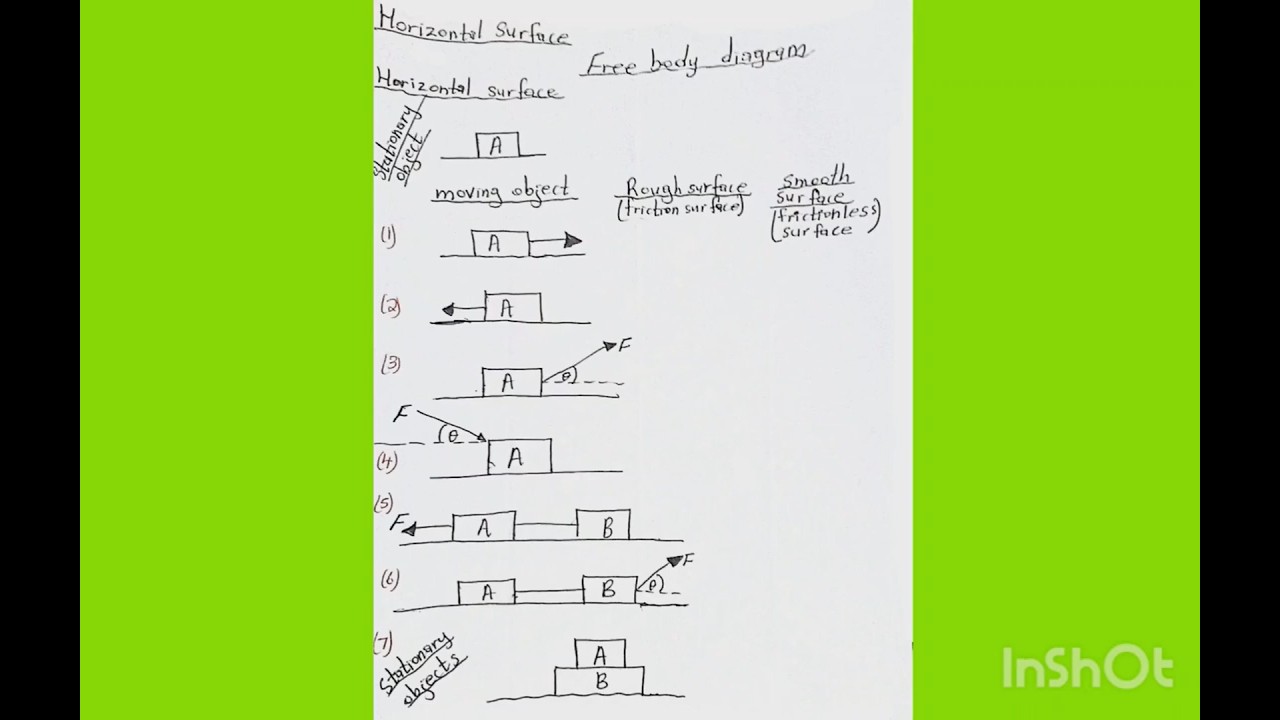 Horizontal Surface
Free body diagram
Horizontal surface
Stationary
object
A
moving object
Rough surface
(friction surface)
Smooth
surface
(frictionless
surface)
(1)
A
(2)
A
(3)
A
θ
F
F
θ
(4)
A
(5)
F
A
B
(6)
A
B
θ
F
(7)
Stationary
objects
A
B
InShOt